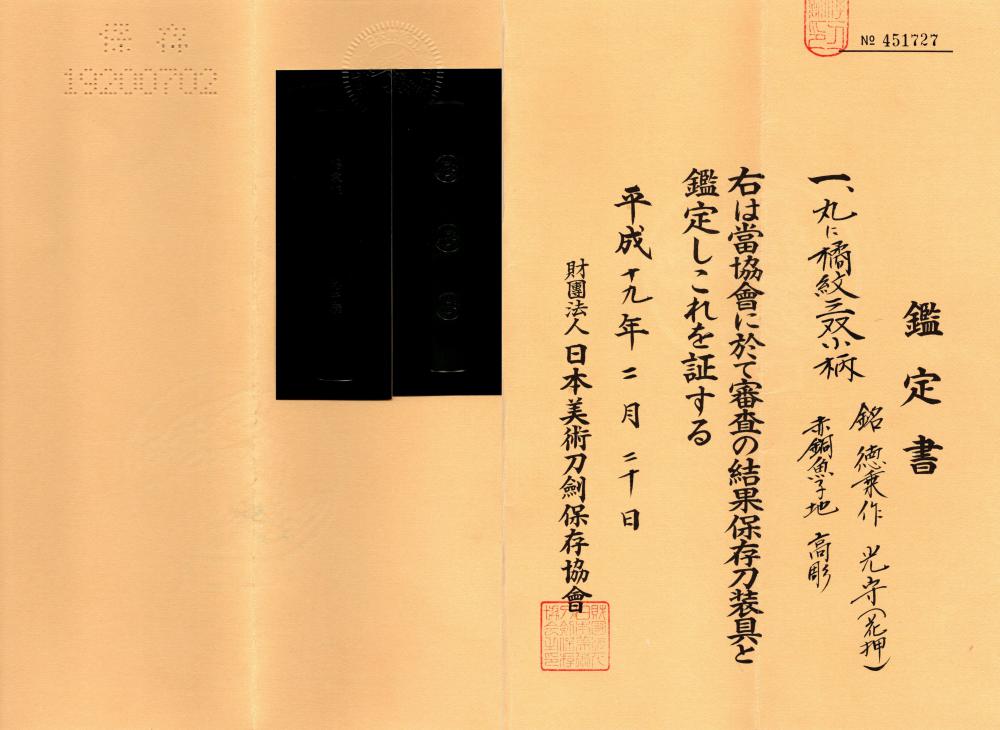 № 451727
鑑定書
一、丸に橘紋三双小柄
銘 徳乗作 光守(花押)
赤銅魚子地 高彫
右は當協會に於て審査の結果保存刀装具と
鑑定しこれを証する
平成十九年二月二十日
財團法人日本美術刀劍保存協會
保存
19200702